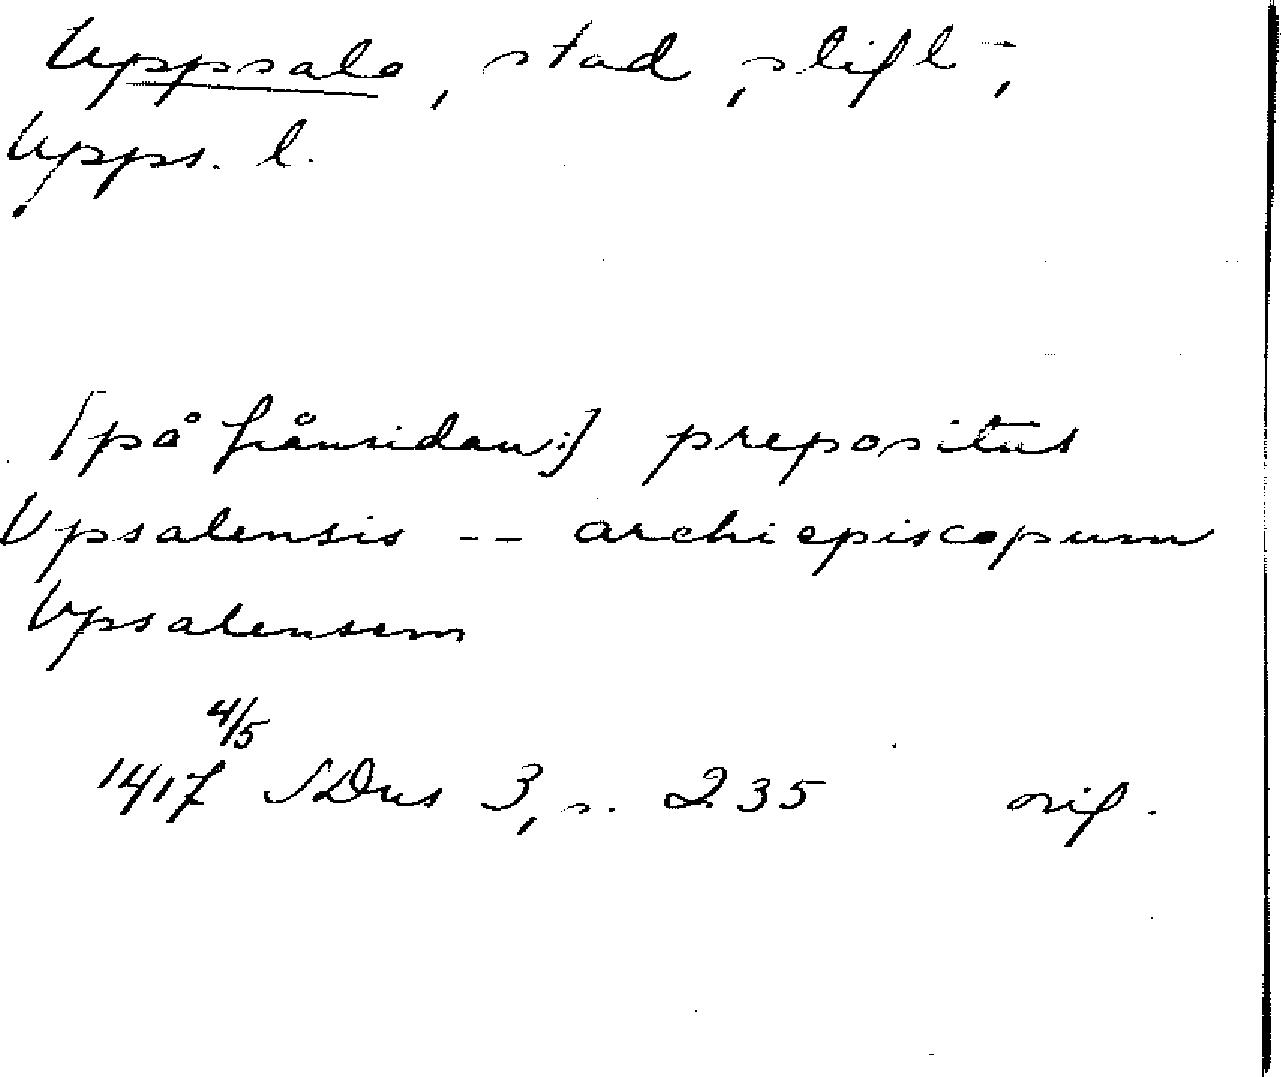 Uppsala, stad, stift,
Upps. l.
[på frånsidan:] prepositus
Vpsalensis -- archiepiscopum
Vpsalensem
4/5
1417 SDns 3, s. 235 orig.